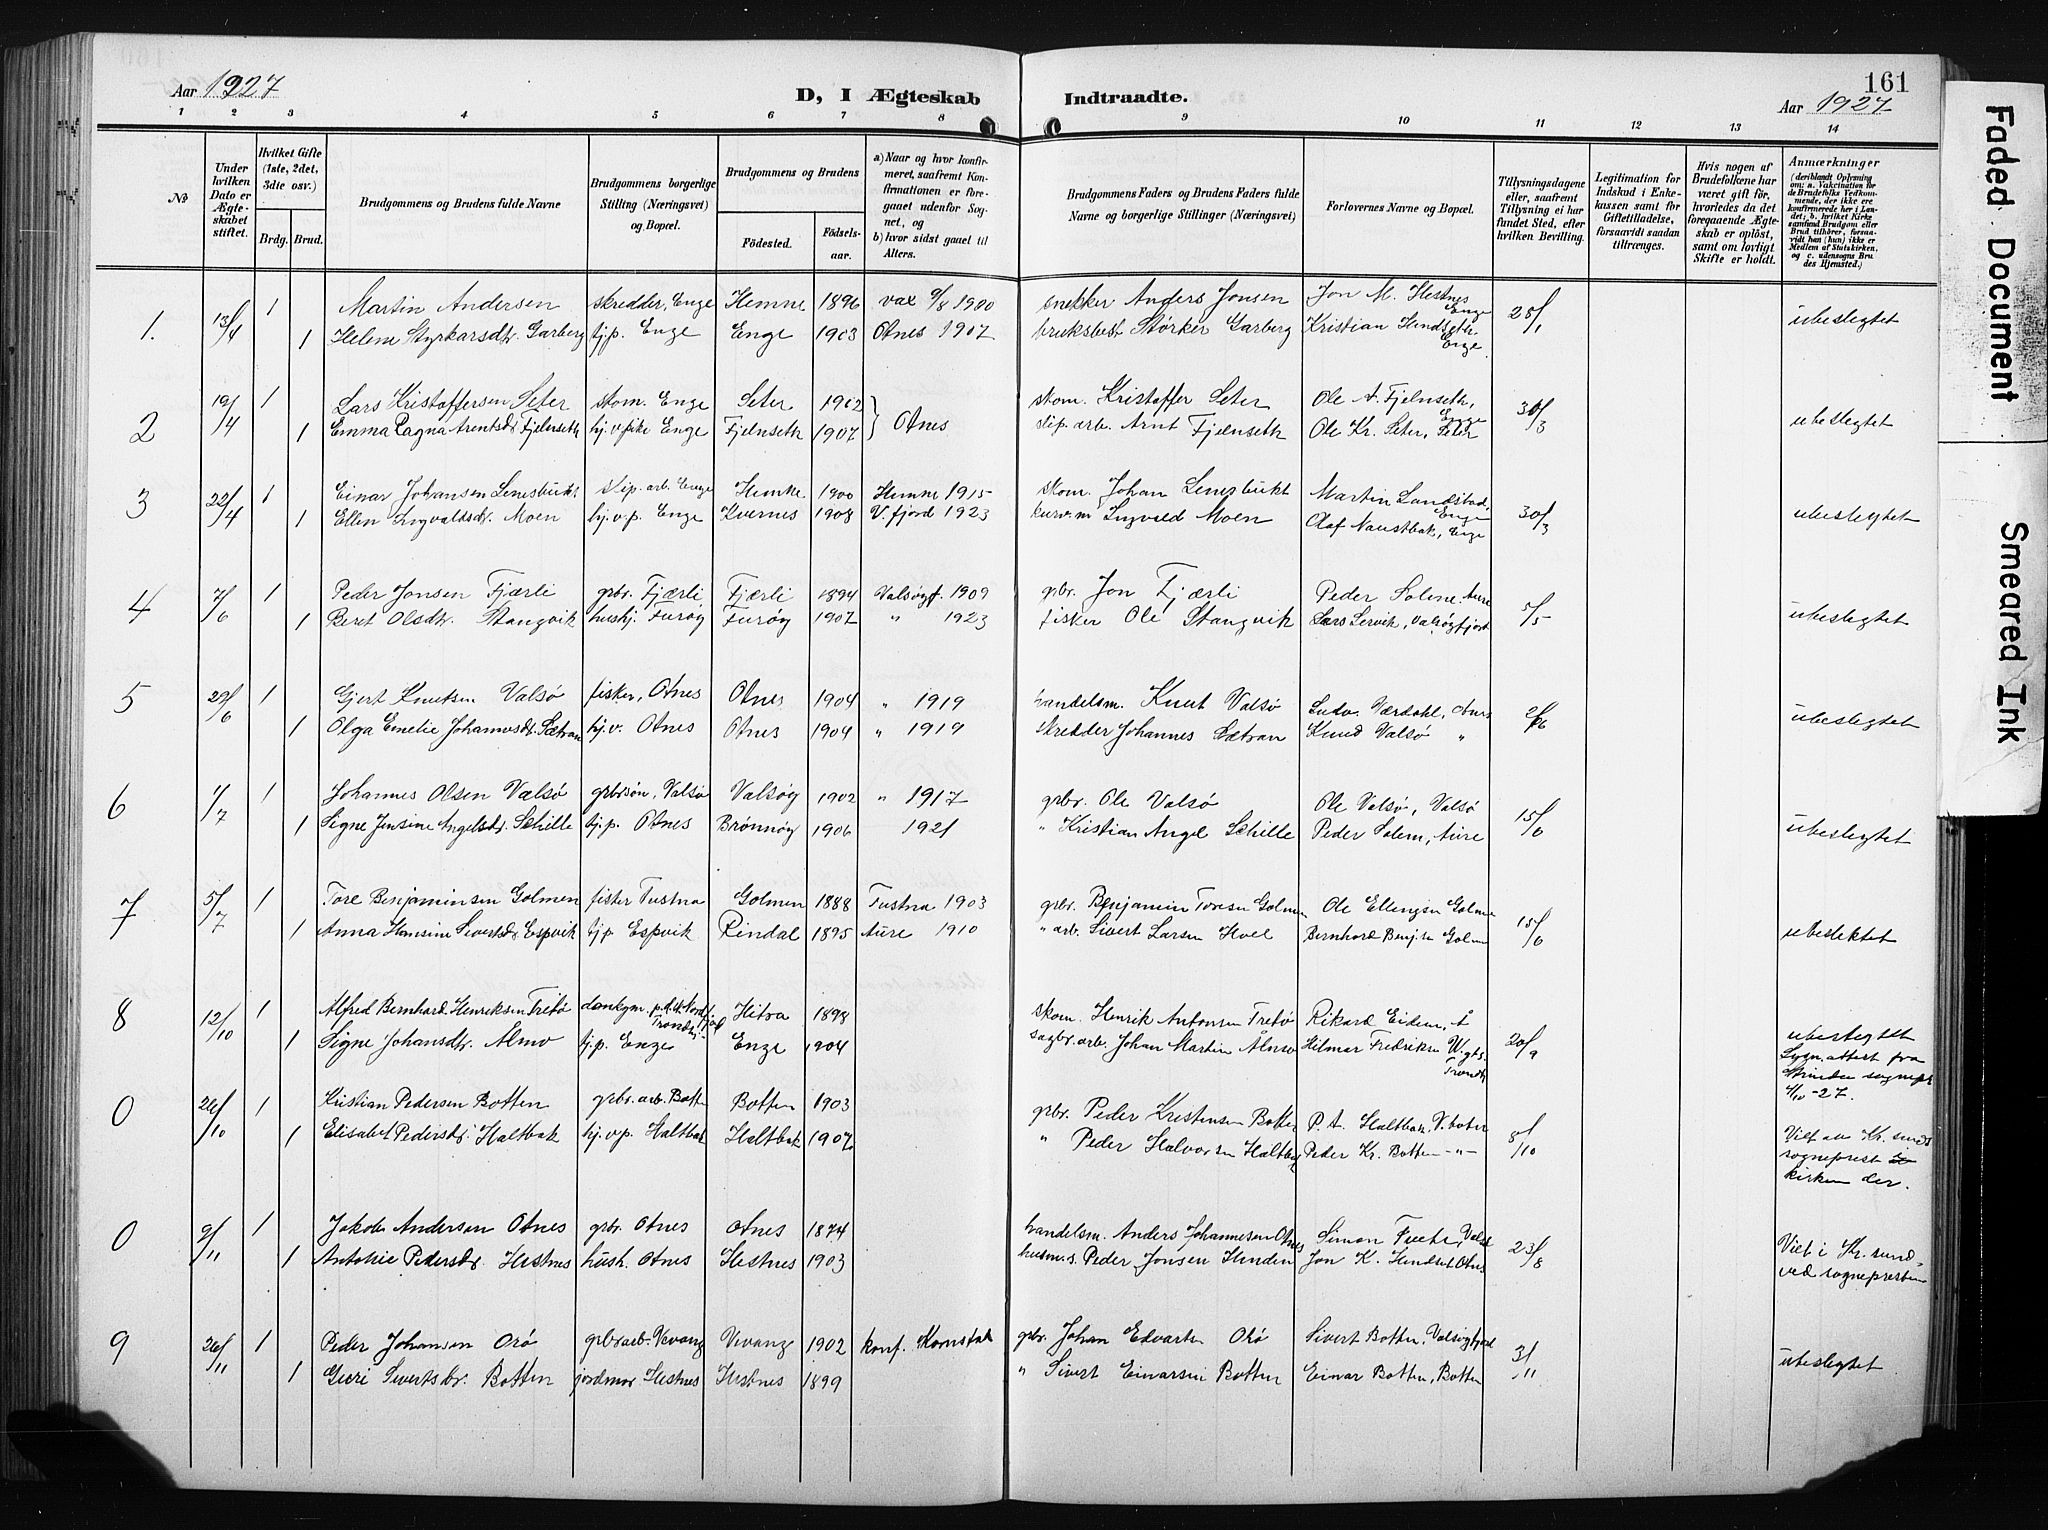 161
Aar 1927
D, I Ægteskab Indtraadte.
Aar 1927
1 2 3 4 5 6 7 8 9 10 11 12 13 14
№
Under hvilken Dato er Ægteskabet stiftet.
Hvilket Gifte (1ste, 2det, 3die osv.)
Brdg. Brud.
Brudgommens og Brudens fulde Navne
Brudgommens borgerlige Stilling (Næringsvei) og Bopæl.
Brudgommens og Brudens
Födested.
Födselsaar.
a) Naar og hvor konfirmeret, saafremt Konfirmationen er foregaaet udenfor Sognet, og
b) hvor sidst gaaet til Alters.
Brudgommens Faders og Brudens Faders fulde Navne og borgerlige Stillinger (Næringsvei)
Forlovernes Navne og Bopæl.
Tillysningsdagene eller, saafremt Tillysning ei har fundet Sted, efter hvilken Bevilling.
Legitimation for Indskud i Enkekassen samt for Giftetilladelse, forsaavidt saadan tiltrænges.
Hvis nogen af Brudefolkene har været gift før, hvorledes da det foregaaende Ægteskab er oplöst, samt om lovligt Skifte er holdt.
Anmærkninger (deriblandt Oplysning om: a. Vakcination for de Brudefolks Vedkommende, der ikke ere konfirmerede her i Landet; b. hvilket Kirkesamfund Brudgom eller Brud tilhörer, forsaavidt han (hun) ikke er Medlem af Statskirken, og c. udensogns Brudes Hjemsted.)
1. 13/4 1 Martin Andersen skredder, Enge Hemne 1896 vax 9/8 1900 snekker Anders Jonsen Jon M. Hestnes Enge 28/1 ubeslegtet
1 Helene Styrkarsdtr. Garberg tj.p. Enge Enge 1903 Otnes 1907 bruksbest. Størker Garberg Kristian Hendseth Enge.
2 19/4 1 Lars Kristoffersen Seter skom. Enge Seter 1902 Otnes skom. Kristoffer Seter Ole A. Fjelnseth, Enge 30/3 ubeslegtet
1 Emma Ragna Arentsdr Fjelnseth hj.v.pike Enge Fjelnseth 1907 slip. arb. Arnt Fjelnseth Ole Kr. Seter, Seter
3 22/4 1 Einar Johansen Lenesbukt slip. arb. Enge Hemne 1900 Hemne 1915 skom. Johan Lenesbukt Martin Landstad, Enge 30/3 ubeslegtet
1 Ellen Ingvaldsdr. Moen hj.v.p. Enge Kvernes 1908 V. fjord 1923 kurv.m Ingvald Moen Olaf Naustbak, Enge
4 7/6 1 Peder Jonsen Fjærli grbr. Fjærli Fjærli 1894 Valsøyf. 1909 gbr. Jon Fjærli Peder Solem. Aure 5/5 ubeslegtet
1 Beret Olsdtr. Stangvik hushj. Furøy Furøy 1907 " 1923 fisker Ole Stangvik Lars Lervik, Valsøyfjord
5 29/6 1 Gjert Knutsen Valsø fisker, Otnes Otnes 1904 " 1919 handelsm. Knut Valsø Ludv. Værdahl, Aure 2/6 ubeslegtet
1 Olga Emelie Johannesdr. Sætran hj.v. Otnes Otnes 1904 " 1919 skredder Johannes Sætran Knud Valsø "
6 1/7 1 Johannes Olsen Valsø grbrsøn, Valsø Valsøy 1902 " 1917 grbr. Ole Valsø Ole Valsø, Valsø 15/6 ubeslegtet
1 Signe Jensine Angelsdr. Schille tj.p. Otnes Brønnøy 1906 1921 " Kristian Angel Schille Peder Solem, Aure
7 5/7 1 Tore Benjaminsen Golmen fisker Tustna Golmen 1888 Tustna 1903 grbr. Benjamin Toresen Golmen Ole Ellingsen Golmen 15/6 ubeslektet
1 Anna Hansine Sivertsdr Espvik tj.p Espvik Rindal 1895 Aure 1910 " arb. Sivert Larsen Hoel Bernhard Benj.sen Golmen
8 12/10 1 Alfred Bernhard Henriksen Tretø Trondhj. Hitra 1898 skom. Henrik Antonsen Tretø Rikard Eidem, Å 20/9 ubeslegtet
1 Signe Johansdtr. Almo tj.p. Enge Enge 1904 sagbr. arb. Johan Martin Almo Hilmar Fredriksen Trondh. Lysn. attest fra Strinden sognepr. 4/10-27.
0 26/10 1 Kristian Pedersen Botten grbr. arb. Botten Botten 1903 grbr. Peder Kristensen Botten P. A. Haltbak, V. boten 8/10 Viet av Kr. sunds sogneprest i kirken der.
1 Elisabet Pedersdr. Haltbak hj.v.p. Haltbak Haltbak 1907 " Peder Halvorsen Haltbak Peder Kr. Botten -"-
0 9/11 1 Jakob Andersen Otnes grbr. Otnes Otnes 1874 handelsm. Anders Johannesen Otnes Simon 23/8 Viet i Kr. sund ved sognepresten
1 Antonie Pedersdr. Hestnes hush. Otnes Hestnes 1903 husm.s. Peder Jonsen Henden Jon K. Hendset Otnes
9 26/11 1 Peder Johansen Orø grbr.arb. Vevang Vevang 1902 konf. Kornstad gbr. Johan Edvartsen Orø Sivert Botten, Valsøyfjord 3/11 ubeslegtet
1 Guri Sivertsdr. Botten jordmor Hestnes Hestnes 1899 " Sivert Einarsen Botten Einar Botten, Botten
Faded Document
Smeared Ink